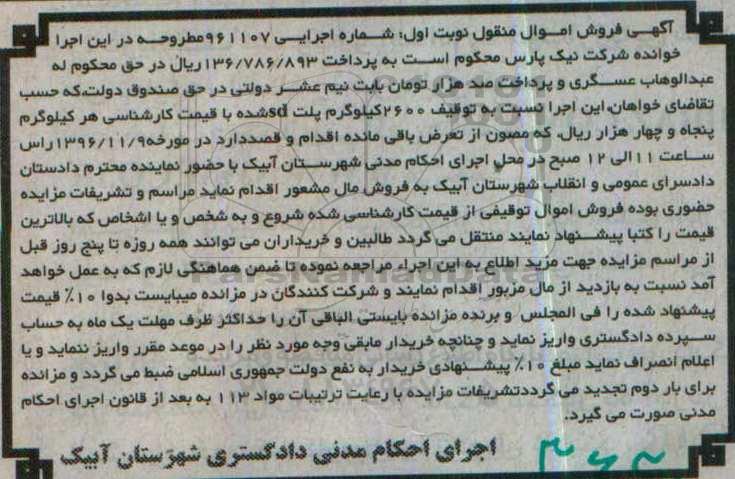 آگهی فروش اموال منقول نوبت اول؛ شماره اجرایی ۹۶۱۱۰۷مطروحه در این اجرا
خوانده شرکت نیک پارس محکوم است به پرداخت ۱۳۶/۷۸۶/۸۹۳ریال در حق محکوم له
عبدالوهاب عسگری و پرداخت صد هزار تومان بابت نیم عشر دولتی در حق صندوق دولت،که حسب
تقاضای خواهان،این اجرا نسبت به توقیف ۲۶۰۰کیلوگرم پلت sdشده با قیمت کارشناسی هر کیلوگرم
پنجاه و چهار هزار ریال، که مصون از تعرض باقی مانده اقدام و قصددارد در مورخه۱۳۹۶/۱۱/۹راس
ساعت ۱۱الی ۱۲ صبح در محل اجرای احکام مدنی شهرستان آبیک با حضور نماینده محترم دادستان
دادسرای عمومی و انقلاب شهرستان آبیک به فروش مال مشعور اقدام نماید مراسم و تشریفات مزایده
حضوری بوده فروش اموال توقیفی از قیمت کارشناسی شده شروع و به شخص و یا اشخاص که بالاترین
قیمت را کتبا پیشنهاد نمایند منتقل می گردد طالبین و خریداران می توانند همه روزه تا پنج روز قبل
از مراسم مزایده جهت مزید اطلاع به این اجرا، مراجعه نموده تا ضمن هماهنگی لازم که به عمل خواهد
آمد نسبت به بازدید از مال مزبور اقدام نمایند و شرکت کنندگان در مزانده میبایست بدوا ۱۰٪ قیمت
پیشنهاد شده را فی المجلس و برنده مزانده بایستی الباقی آن را حداکثر ظرف مهلت یک ماه به حساب
سپرده دادگستری واریز نماید و چنانچه خریدار مابقی وجه مورد نظر را در موعد مقرر واریز ننماید و یا
اعلام انصراف نماید مبلغ ۱۰٪ پیشنهادی خریدار به نفع دولت جمهوری اسلامی ضبط می گردد و مزانده
برای بار دوم تجدید می گرددتشریفات مزایده با رعایت ترتیبات مواد ۱۱۳ به بعد از قانون اجرای احکام
مدنی صورت می گیرد.
اجرای احکام مدنی دادگستری شهرستان آبیک